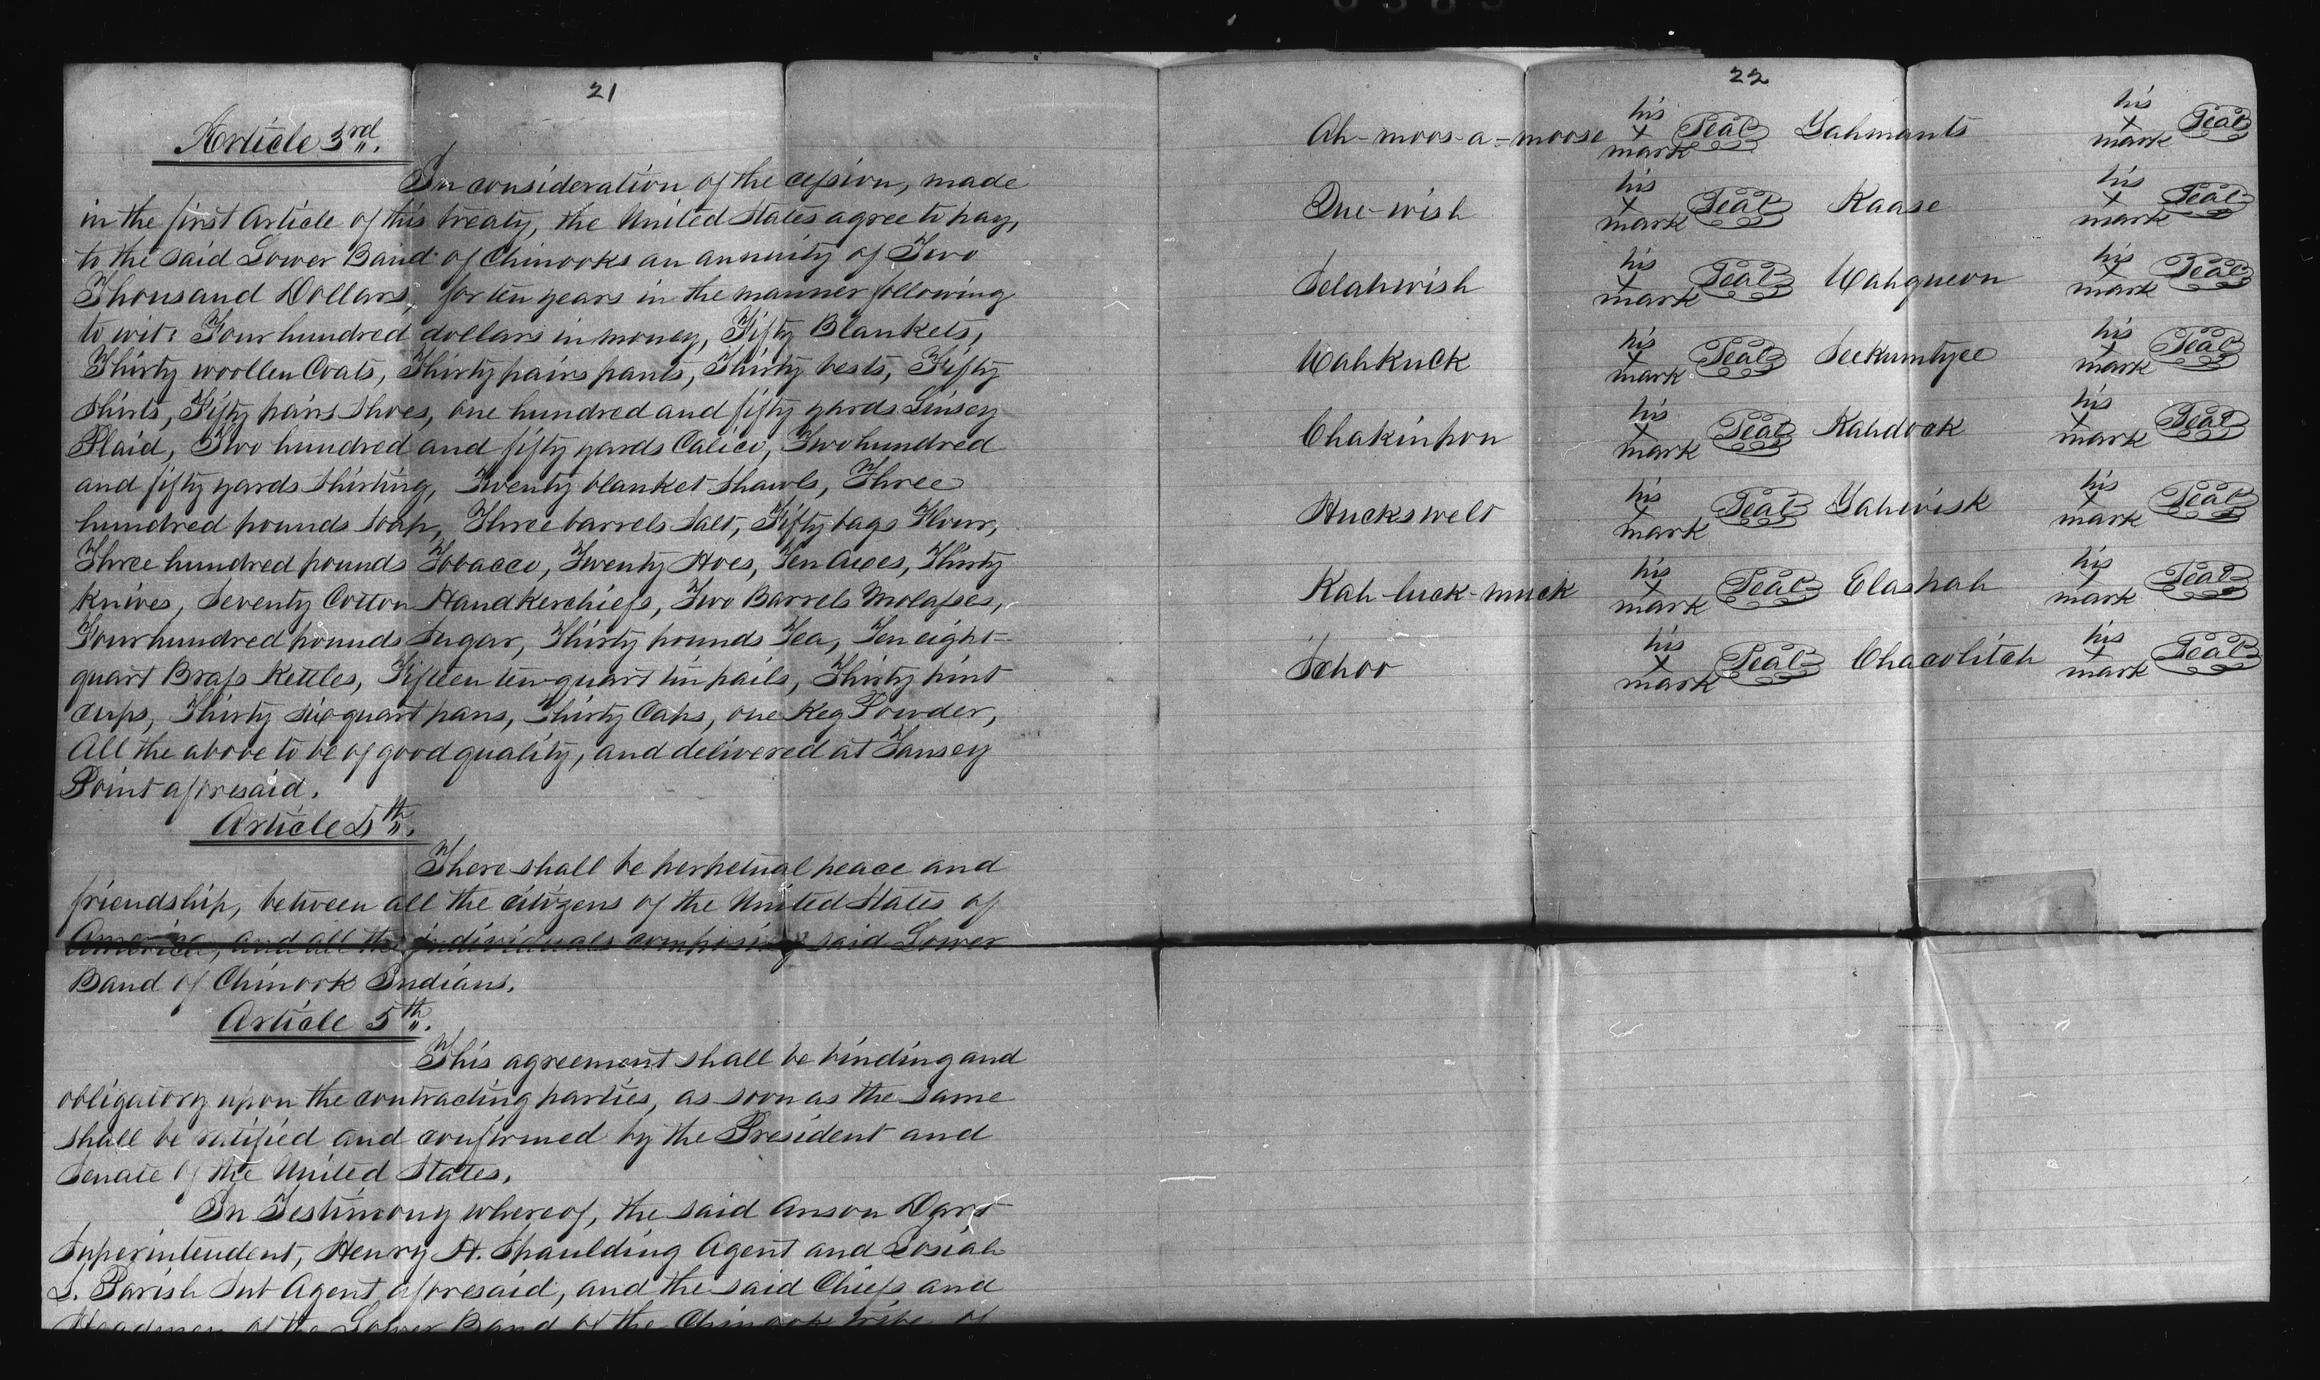 21
Article 3rd.
In consideration of the cession, made
in the first Article of this treaty, the United States agree to pay,
to the said Lower Band of Chinooks an annuity of Two
Thousand Dollars, for ten years in the manner following
to wit: Four hundred dollars in money, Fifty Blankets,
Thirty woollen Coats, Thirty pairs pants, Thirty vests, Fifty
Shirts, Fifty pairs Shoes, one hundred and fifty yards Linsey
Plaid, Two hundred and fifty yards Calico, Two hundred
and fifty yards Shirting, Twenty blanket Shawls, Three
hundred pounds Soap, Three barrels Salt, Fifty bags Flour,
Three hundred pounds Tobacco, Twenty Hoes, Ten Axes, Thirty
Knives, Seventy Cotton Handkerchiefs, Two Barrels Molasses,
Four hundred pounds Sugar, Thirty pounds Tea, Ten eight=
quart Brass Kettles, Fifteen ten-quart tin pails, Thirty pint
cups, Thirty six quart pans, Thirty Caps, one Keg Powder,
All the above to be of good quality, and delivered at Tansey
Point aforesaid.
Article 4th.
There shall be perpetual peace and
friendship, between all the citizens of the United States of
America, and all the individuals composing said Lower
Band of Chinook Indians.
Article 5th.
This agreement shall be binding and
obligatory upon the contracting parties, as soon as the same
shall be ratified and confirmed by the President and
Senate of the United States.
In Testimony whereof, the said Anson Dart
Superintendent, Henry H. Spaulding Agent and Josiah
L. Parish Sub Agent aforesaid, and the said Chiefs and
Headmen of the Lower Band of the Chinook tribe of
22
Ah-moos-a=moose his x mark Seal Yahmants his x mark Seal
Que-wish his x mark Seal Kaase his x mark Seal
Selahwish his x mark Seal Wahqueon his x mark Seal
Wahkuck his x mark Seal Seekumtyee his x mark Seal
Chakinpon his x mark Seal Kahdock his x mark Seal
Huckswelt his x mark Seal Yahwisk his x mark Seal
Kah-luck-muck his x mark Seal Elashah his x mark Seal
Schoo his x mark Seal Chacolitch his x mark Seal